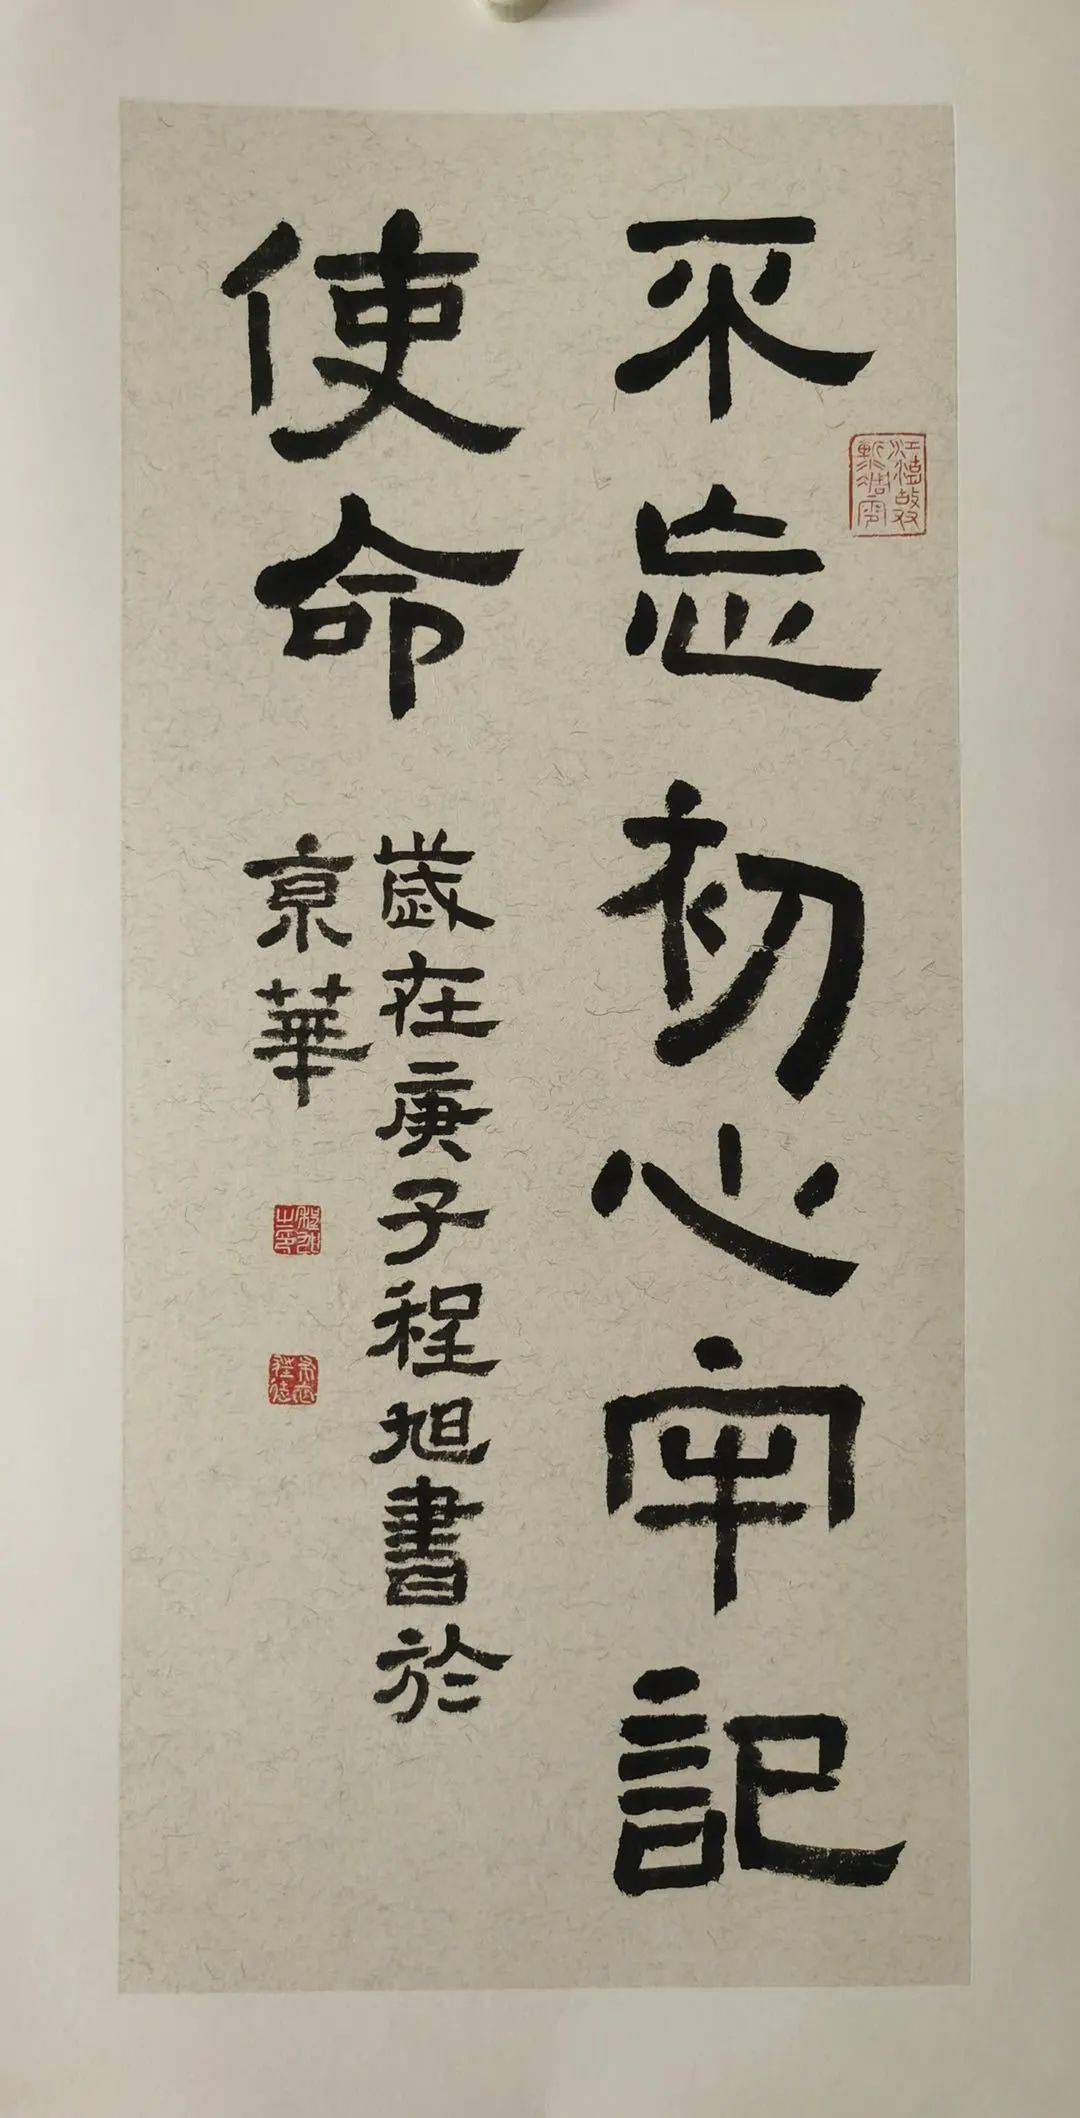 不忘初心牢記
使命
歲在庚子程旭書於
京華